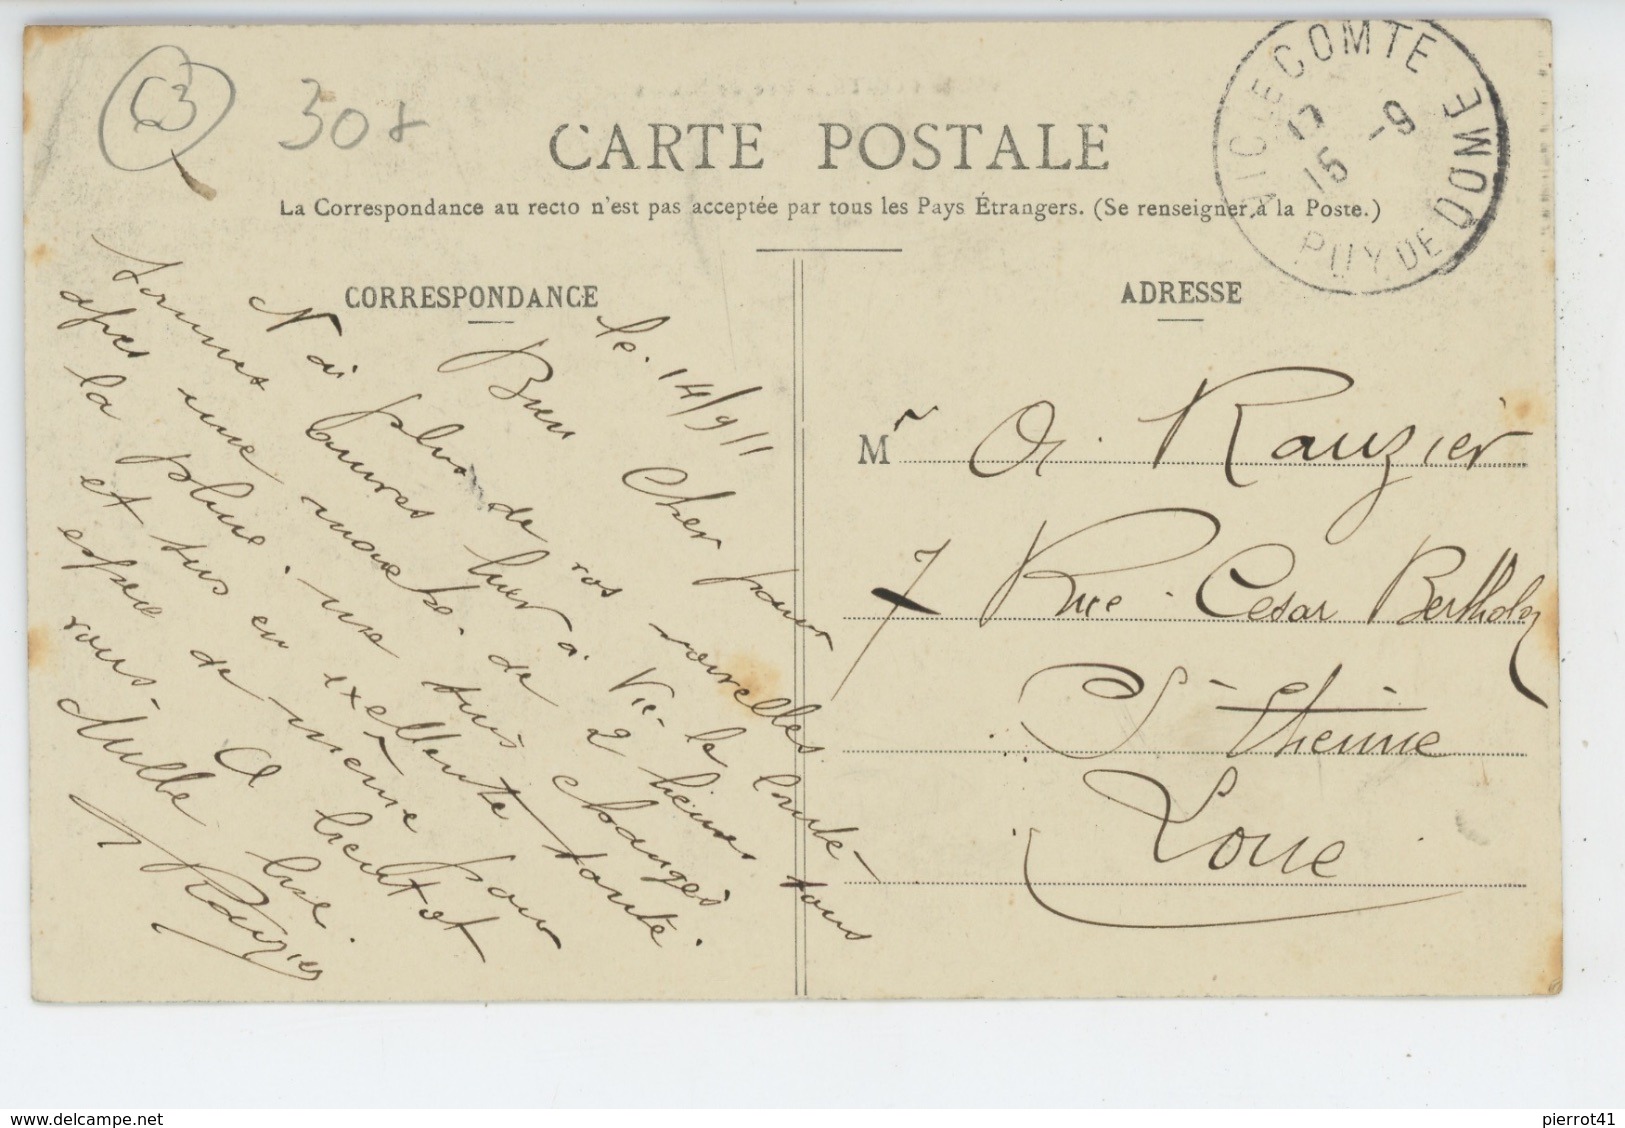 63
308
CARTE POSTALE
La Correspondance au recto n'est pas acceptée par tous les Pays Étrangers. (Se renseigner à la Poste.)
VIC LE COMTE
17
15 -9
PUY DE DOME
CORRESPONDANCE
le. 14/9 11
Bien Cher pour
N'ai plus de vos nouvelles.
sommes hier à Vic-le Comte-
après une marche de 2 heures tous
la pluie. une tous changés
et tous en exellente
espère de même pour
vous. A bientot
Mille bise.
Rauzier
ADRESSE
Mr A. Rauzier
7 Rue Cesar Bertholon
St-Etienne
Loire
delcampe.net
pierrot41